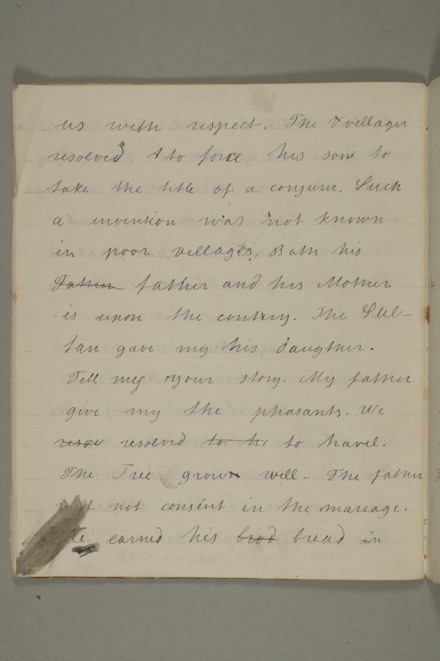 us with respect. The villager
resolved to force his son to
take the title of a conjurer. Such
a invention was not known
in poor villages. Both his
Father father and his Mother
is upon the contrry. The Sul-
tan gave my his daughter.
Tell mey your story. My father
give my the phasants. We
resolved to tr to travel.
The Tree grown well. The father
not consent in the mariage.
earned his brod bread in